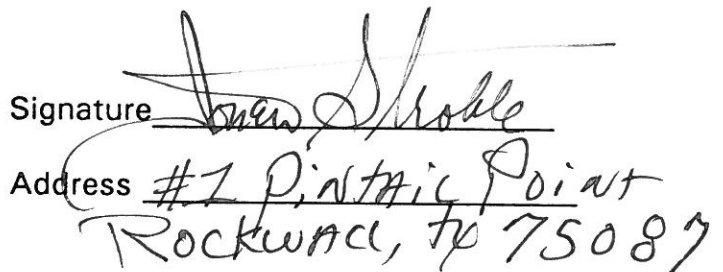 Signature Stroble
Address #1 Pintail Point
Rockwall, TX 75087